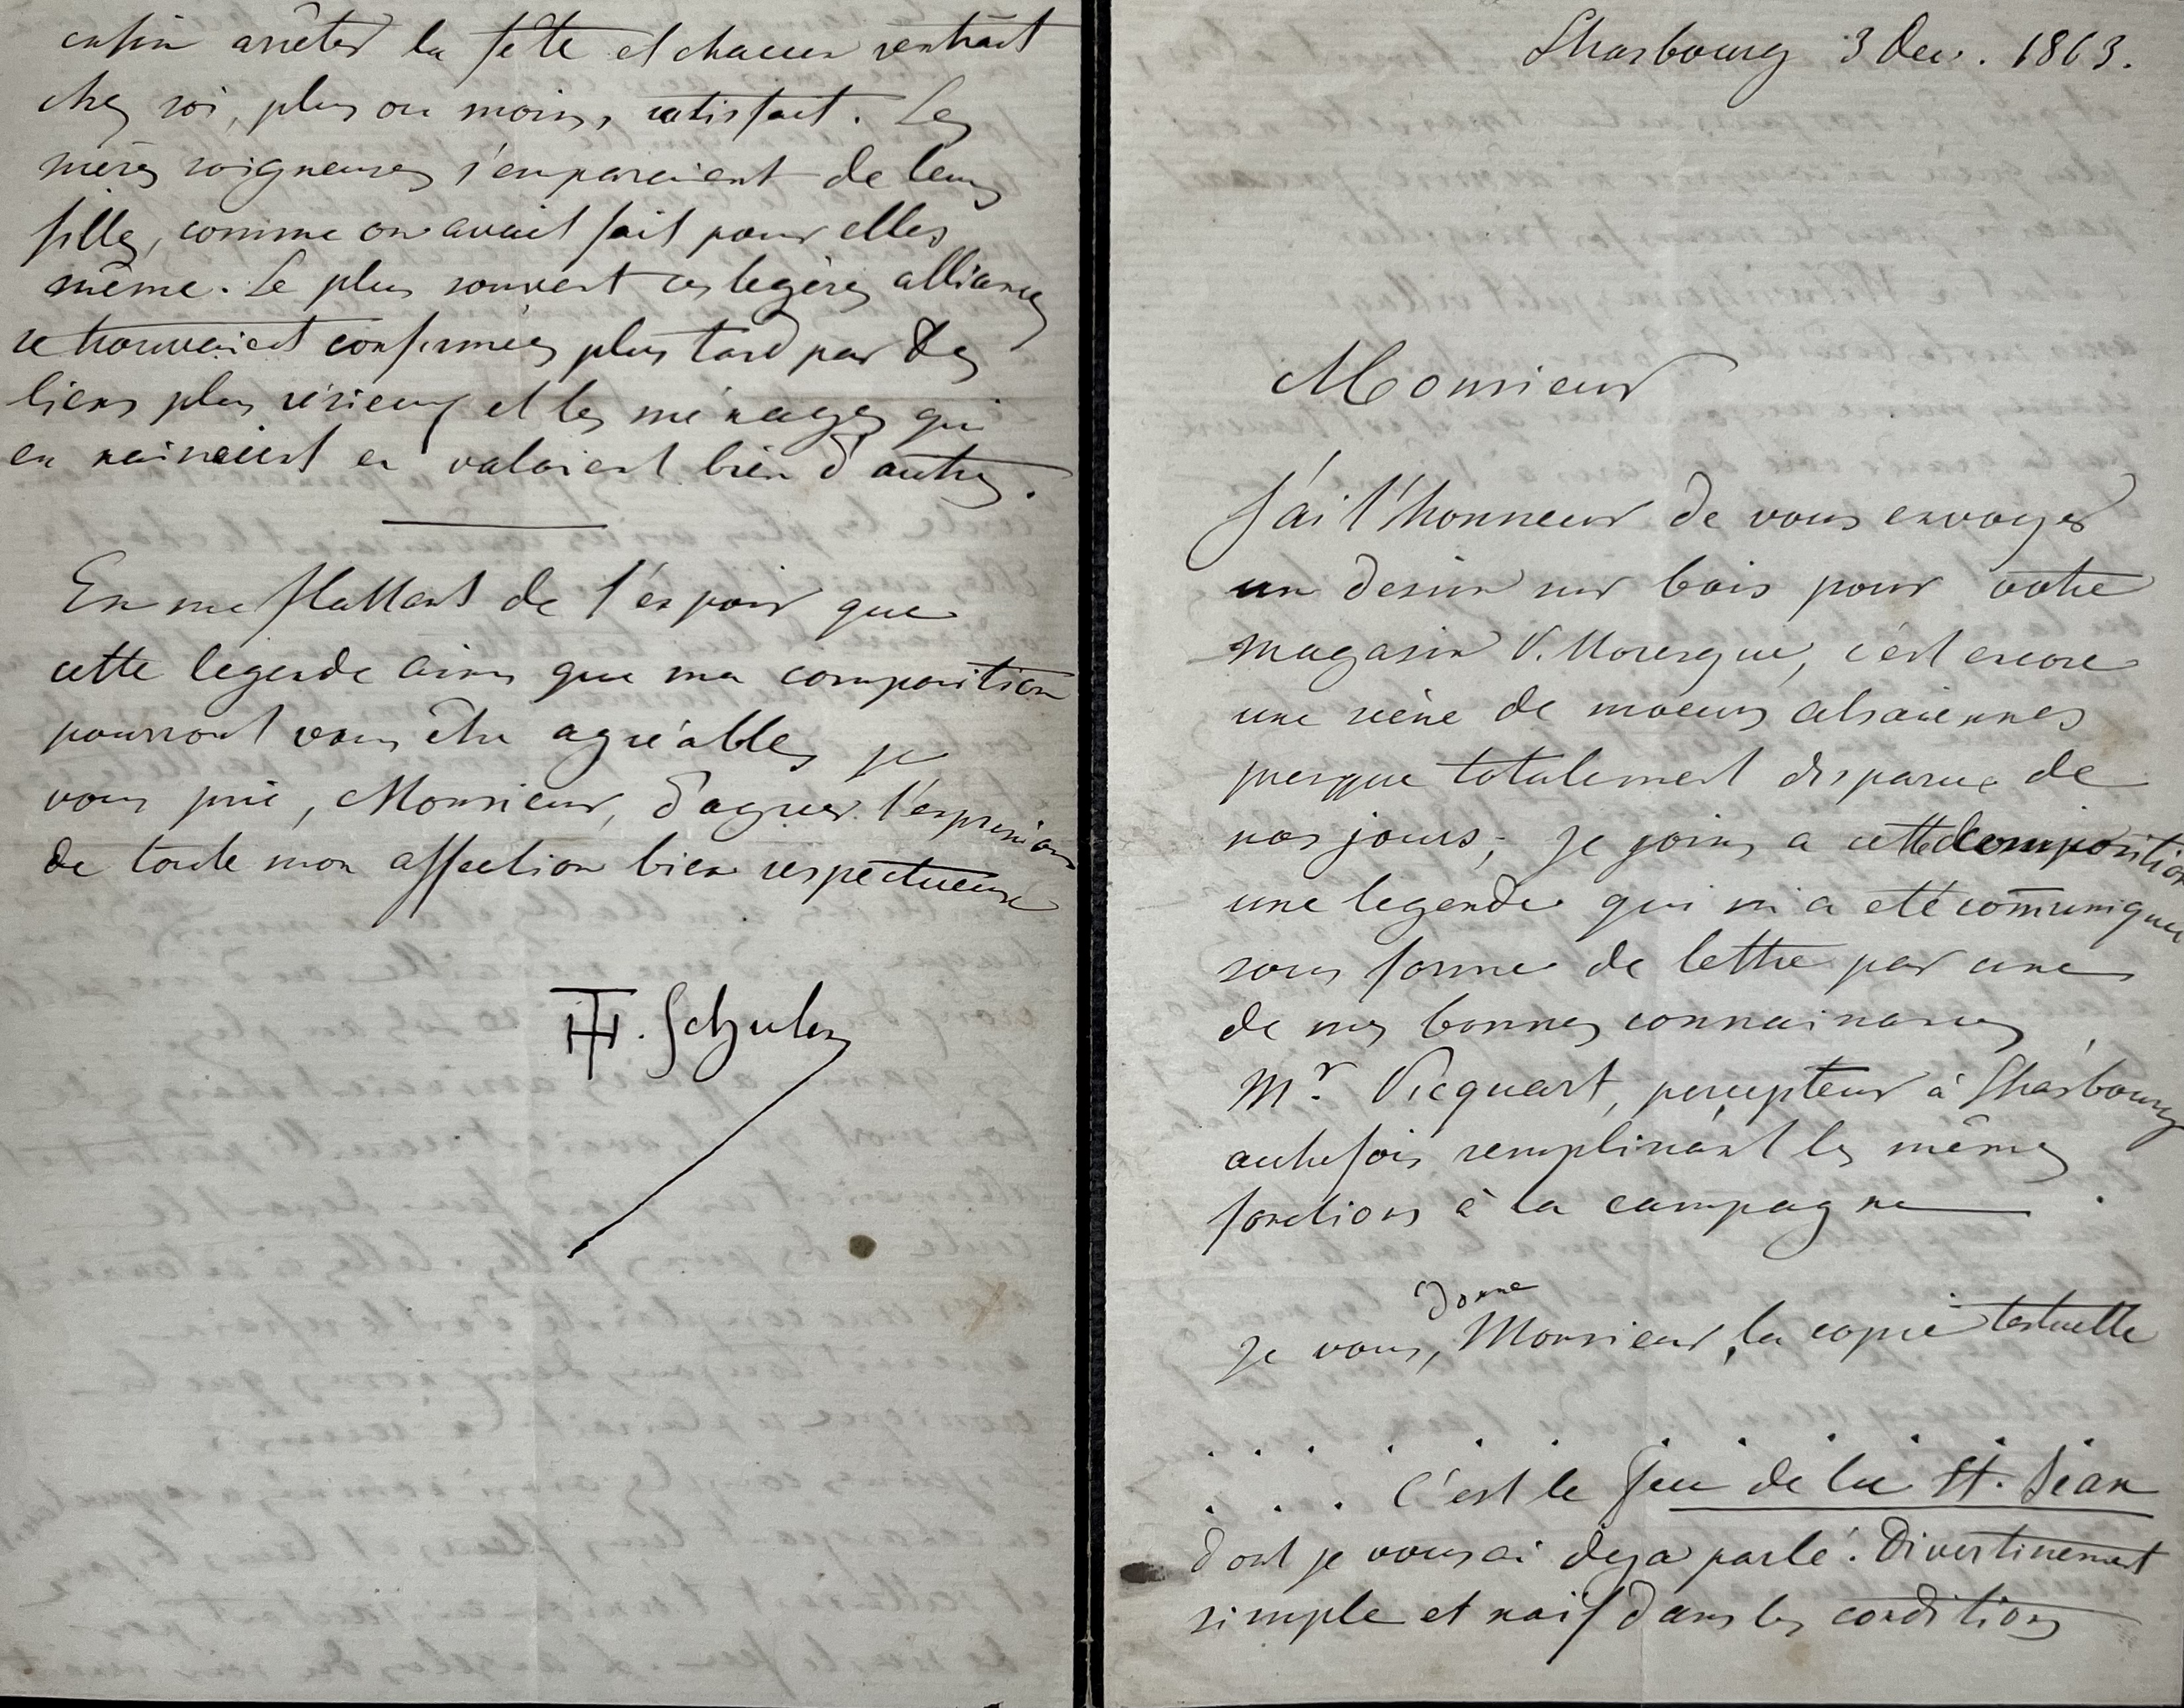 Strasbourg 3 Dec. 1863.
Monsieur
J'ai l'honneur de vous envoyer
un dessin sur bois pour votre
magasin P. Moresque, c'est encore
une scène de moeurs alsaciennes
presque totalement disparue de
nos jours; je joins a cette composition
une legende qui m'a eté comuniquée
sous forme de lettre par une
de mes bonnes connaissances
Mr. Picquart, percepteur à Strasbourg
autrefois remplissant les mêmes
fonctions à la campagne.
donne
Je vous, Monsieur, la copie textuelle
. . . . . . . . . . . .
. . . C'est le feu de la St. Jean
dont je vous ai deja parlé. Divertissement
simple et naif dans les conditions
enfin arrêter la fête et chacun rentrait
chez soi, plus ou moins, satisfait. Les
mères soigneuses s'emparaient de leurs
filles, comme on avait fait pour elles
même. Le plus souvent ces legères alliances
se trouvaient confirmées plus tard par des
liens plus sérieux et les ménages qui
en naissaient en valaient bien d'autres.
En me flattant de l'espoir que
cette legende ainsi que ma composition
pourront vous être agréables je
vous prie, Monsieur, d'agréer l'expression
de toute mon affection bien respectueuse
TH. Schuler